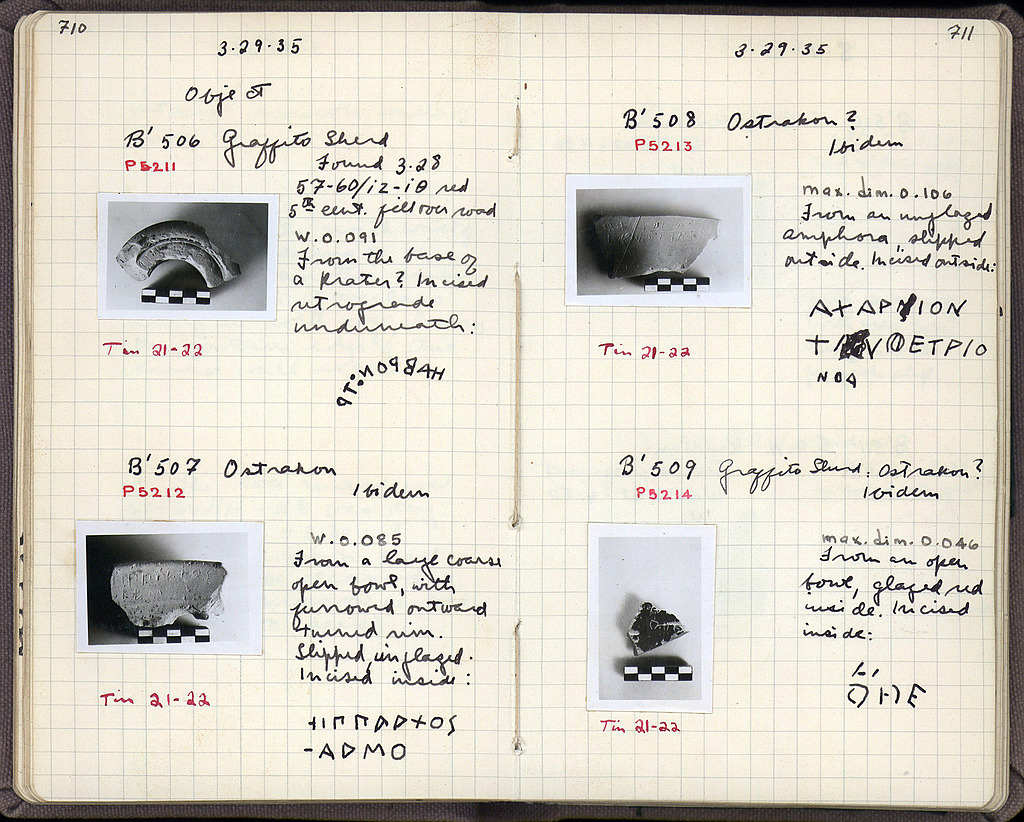 710
3·29·35
Object
B' 506 Graffito Sherd
P5211
Found 3.28
57-60/ΙΖ-ΙΘ red
5th cent. fill over road
W. 0.091
From the base of
a krater? Incised
retrograde
underneath:
Tin 21-22
B' 507 Ostrakon
P5212
Ibidem
W. 0.085
From a large coarse
open bowl, with
furrowed outward
turned rim.
Slipped, unglazed.
Incised inside:
Tin 21-22
ΗΙΠΠΑΡ+ΟS
-ΑΡΜΟ
711
3·29·35
B' 508 Ostrakon?
P5213
Ibidem
max. dim. 0.106
From an unglazed
amphora, slipped
outside. Incised outside:
Tin 21-22
B' 509 Graffito Sherd: Ostrakon?
P5214
Ibidem
max. dim. 0.046
From an open
bowl, glazed red
inside. Incised
inside:
Tin 21-22